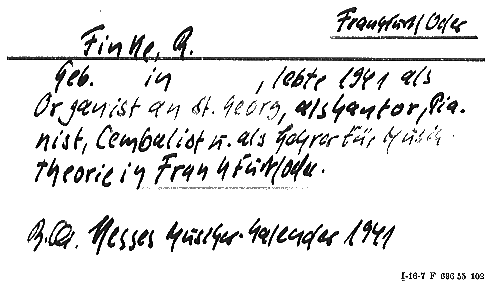 Frankfurt/Oder
Finke, R.
Geb. in , lebte 1941 als
Organist an St. Georg, als Kantor, Pia-
nist, Cembalist u. als Lehrer für Musik-
theorie in Frankfurt/Oder.
Hesses Musiker-Kalender 1941
I-16-7 F 686 55 102